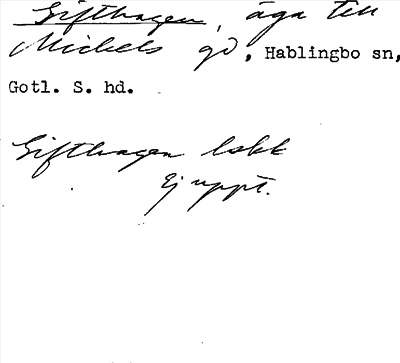 Gifthagen, äga till
Michels gd, Hablingbo sn,
Gotl. S. hd.
Gifthagen lskk
Ej uppt.